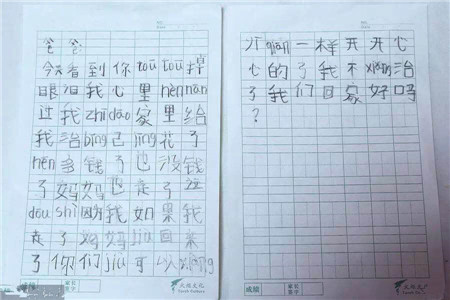 爸爸:
今天看到你tōu tōu掉
眼泪我心里hěn nán
过我zhī dào家里给
我治bìng已jīng花了
hěn多钱了也没钱
了妈妈也走了这
dōu shì因为我如果我
走了妈妈jiù回来
了你们jiù可以xiàng
成绩 家长签字
以qián一样开开心
心的了我不xiǎng治
了我们回家好吗
?
成绩 家长签字